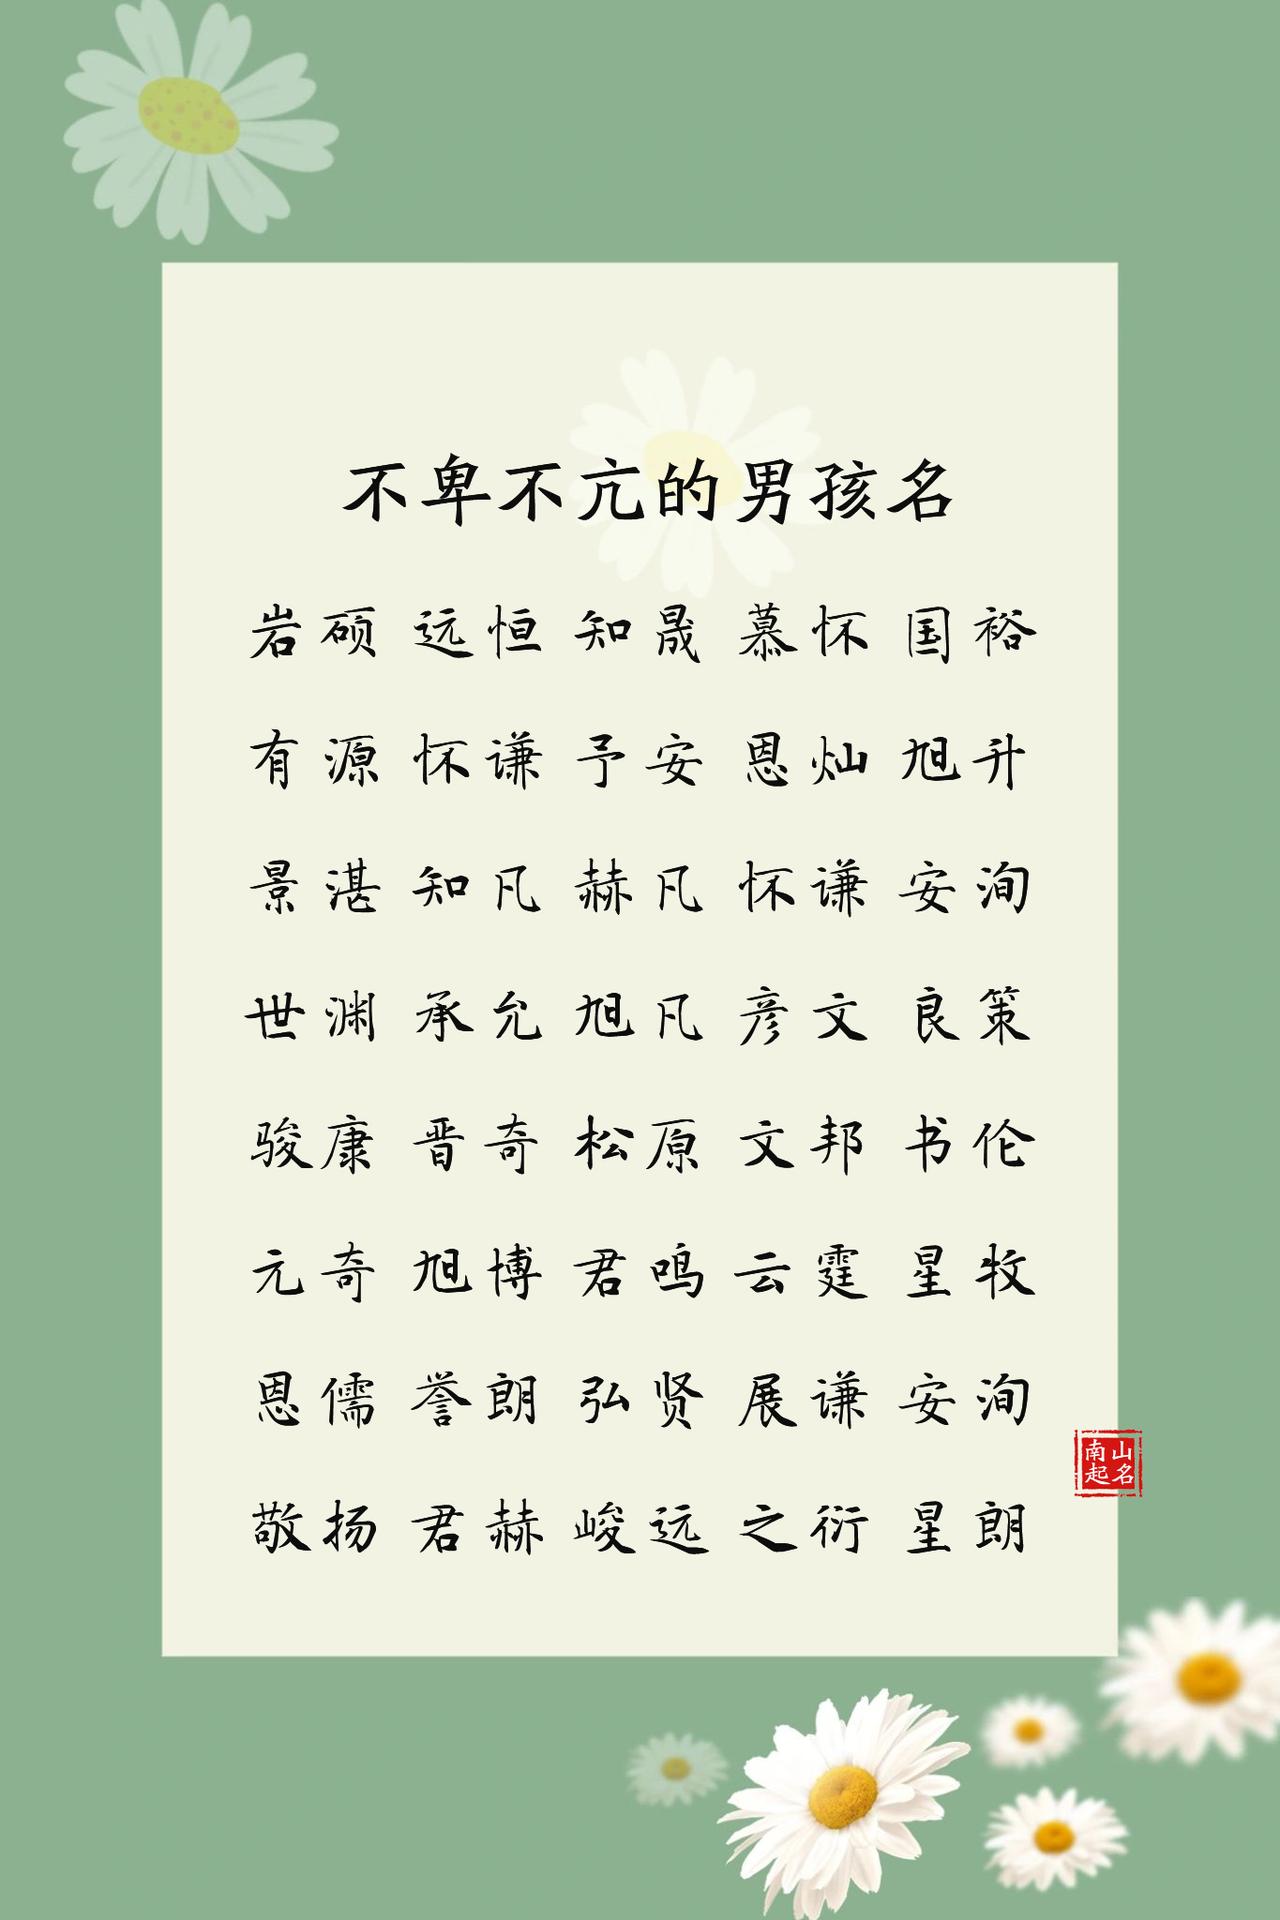 不卑不亢的男孩名
岩硕 远恒 知晟 慕怀 国裕
有源 怀谦 予安 恩灿 旭升
景湛 知凡 赫凡 怀谦 安洵
世渊 承允 旭凡 彦文 良策
骏康 晋奇 松原 文邦 书伦
元奇 旭博 君鸣 云霆 星牧
恩儒 誉朗 弘贤 展谦 安洵
南山
起名
敬扬 君赫 峻远 之衍 星朗